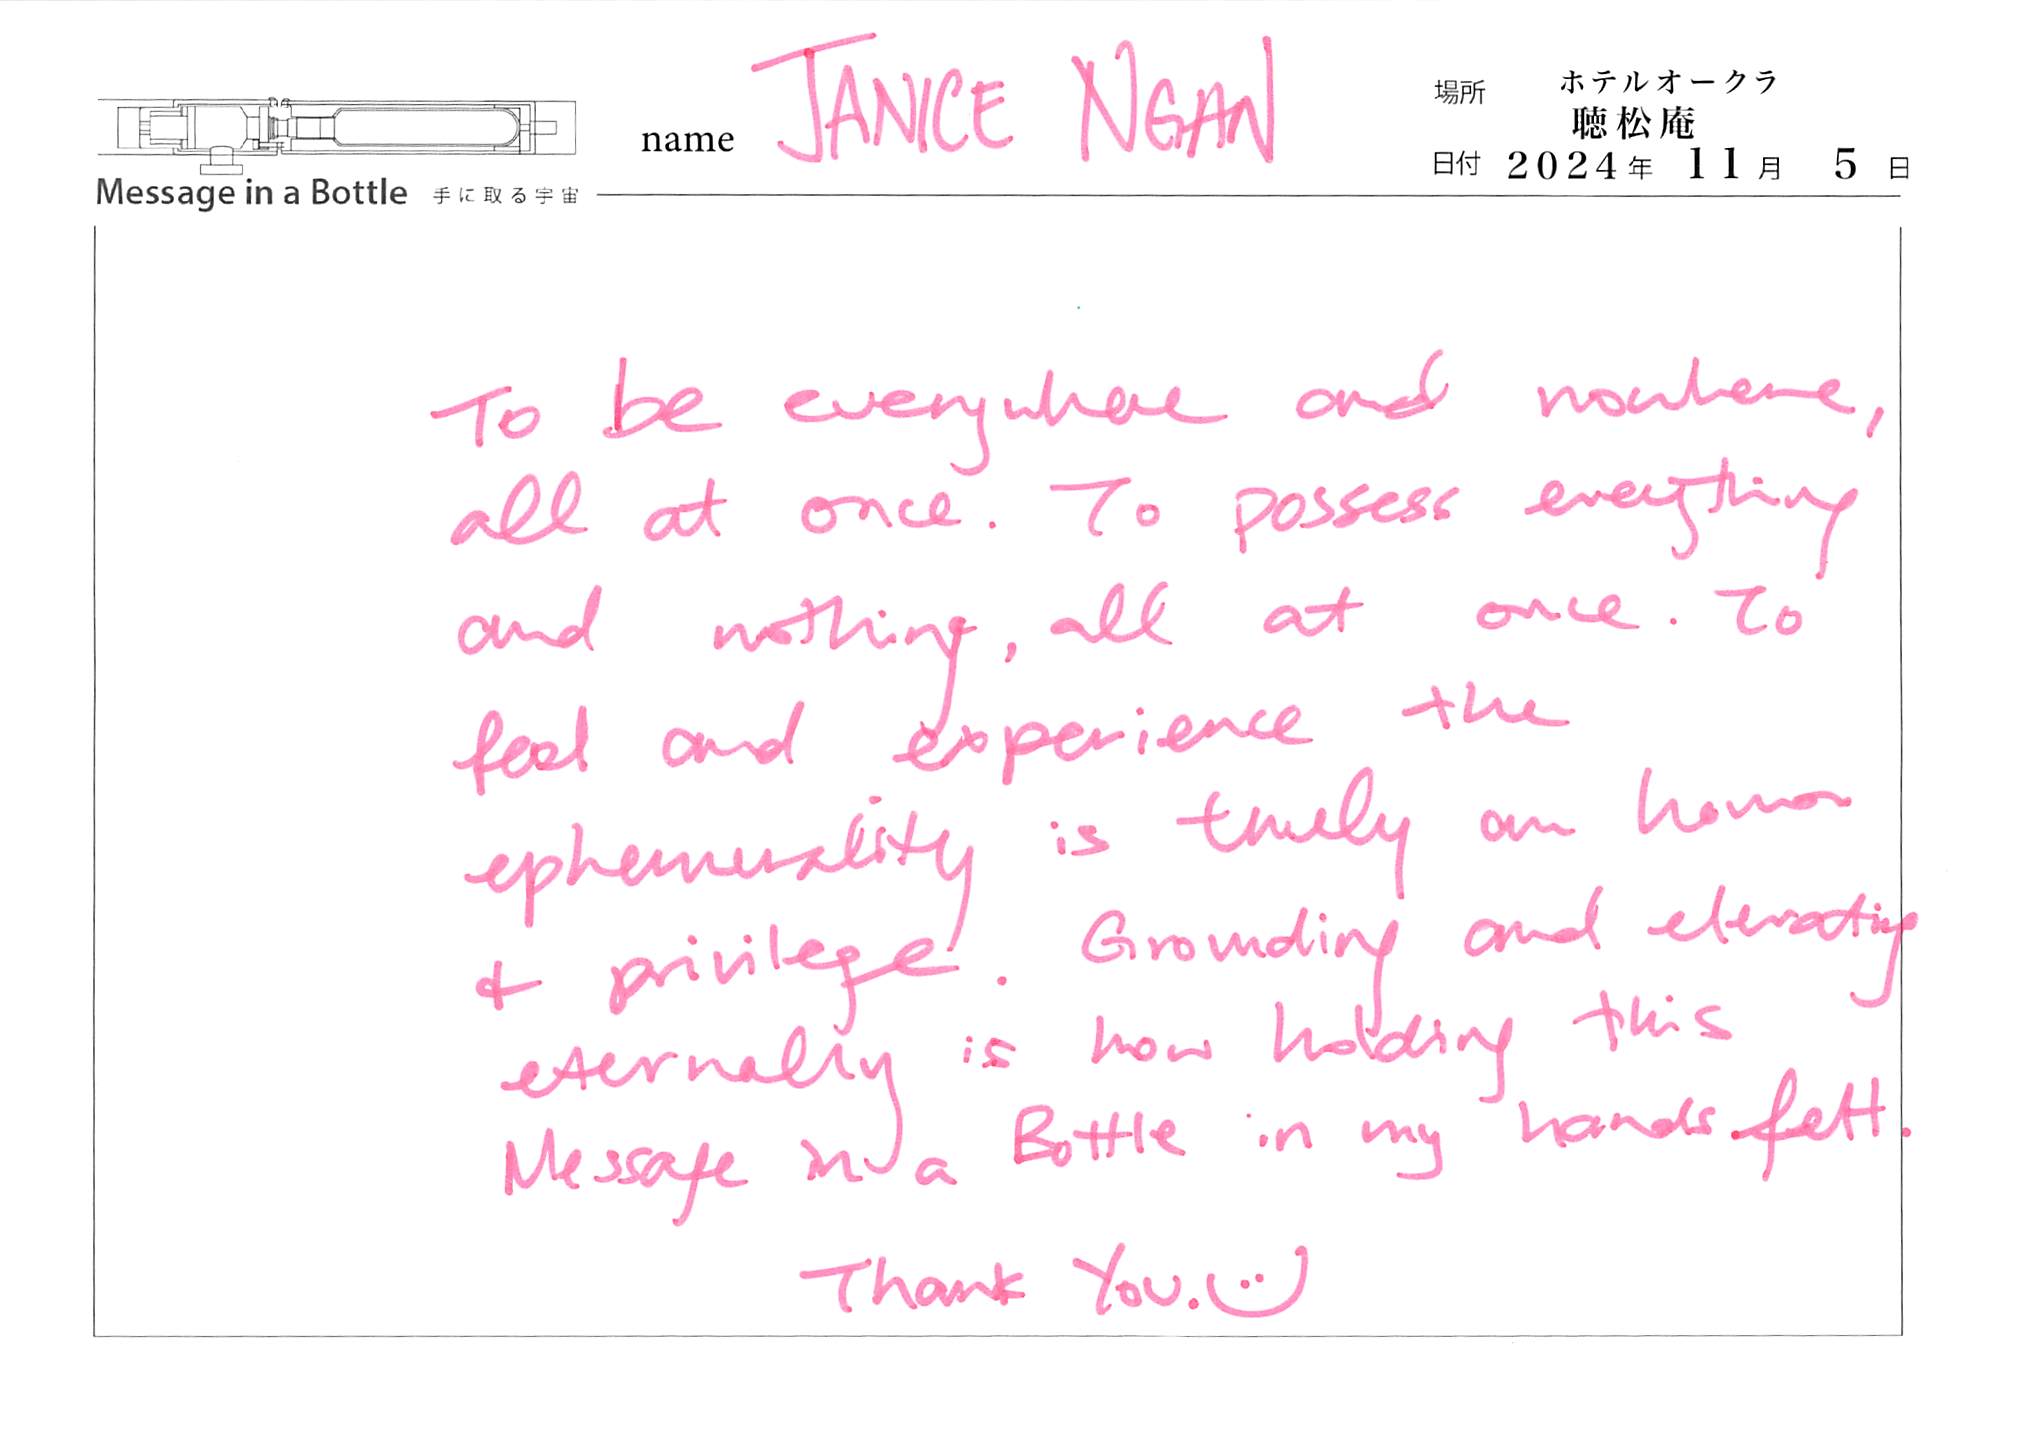 name JANICE NGAN
場所 ホテルオークラ
聴松庵
日付 2024年 11月 5日
Message in a Bottle 手に取る宇宙
To be everywhere and nowhere,
all at once. To possess everything
and nothing, all at once. To
feel and experience the
ephemerality is truely an honor
& privilege. Grounding and elevating
eternally is how holding this
Message in a Bottle in my hands felt.
Thank You.